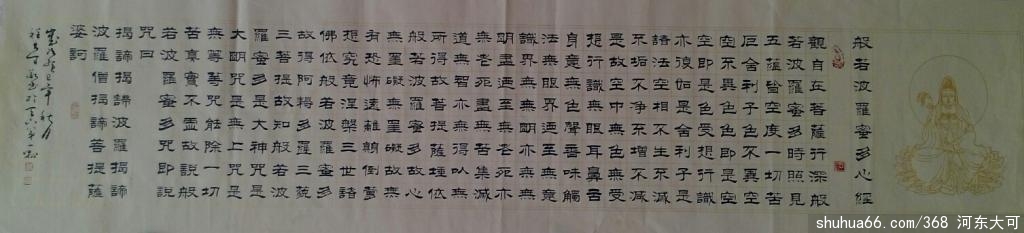 般若波羅蜜多心經
觀自在菩薩行深般
若波羅蜜多時照見
五蘊皆空度一切苦
厄舍利子色不異空
空不異色色即是空
空即是色受想行識
亦復如是舍利子是
諸法空相不生不滅
不垢不淨不增不減
是故空中無色無受
想行識無眼耳鼻舌
身意無色聲香味觸
法無眼界乃至無意
識界無無明亦無無
明盡乃至無老死亦
無老死盡無苦集滅
道無智亦無得以無
所得故菩提薩埵依
般若波羅蜜多故心
無罣礙無罣礙故無
有恐怖遠離顛倒夢
想究竟涅槃三世諸
佛依般若波羅蜜多
故得阿耨多羅三藐
三菩提故知般若波
羅蜜多是大神咒是
大明咒是無上咒是
無等等咒能除一切
苦真實不虛故說般
若波羅蜜多咒即說
咒曰
揭諦揭諦波羅揭諦
波羅僧揭諦菩提薩
婆訶
歲次癸巳年秋月
shuhua66.com/368 河东大可